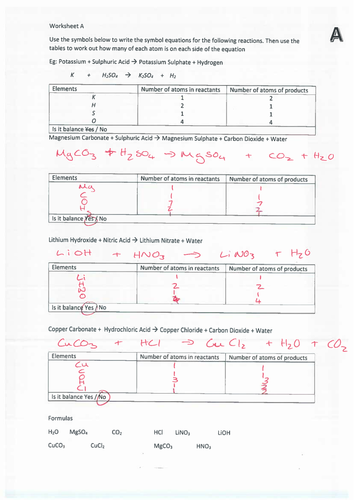 Worksheet A
A
Use the symbols below to write the symbol equations for the following reactions. Then use the
tables to work out how many of each atom is on each side of the equation
Eg: Potassium + Sulphuric Acid → Potassium Sulphate + Hydrogen
K + H₂SO₄ → K₂SO₄ + H₂
Elements Number of atoms in reactants Number of atoms of products
K 1 2
H 2 2
S 1 1
O 4 4
Is it balance Yes / No
Magnesium Carbonate + Sulphuric Acid → Magnesium Sulphate + Carbon Dioxide + Water
MgCO₃ + H₂SO₄ → MgSO₄ + CO₂ + H₂O
Elements Number of atoms in reactants Number of atoms of products
Mg 1 1
C 1 1
O 7 7
H 2 2
Is it balance Yes / No
Lithium Hydroxide + Nitric Acid → Lithium Nitrate + Water
LiOH + HNO₃ → LiNO₃ + H₂O
Elements Number of atoms in reactants Number of atoms of products
Li 1 1
H 2 2
N 1 1
O 4 4
Is it balance Yes / No
Copper Carbonate + Hydrochloric Acid → Copper Chloride + Carbon Dioxide + Water
CuCO₃ + HCl → CuCl₂ + H₂O + CO₂
Elements Number of atoms in reactants Number of atoms of products
Cu 1 1
C 1 1
O 3 3
H 1 2
Cl 1 2
Is it balance Yes / No
Formulas
H₂O MgSO₄ CO₂ HCl LiNO₃ LiOH
CuCO₃ CuCl₂ MgCO₃ HNO₃